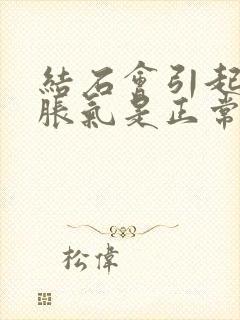 結石會引起
脹氣是正常
松偉